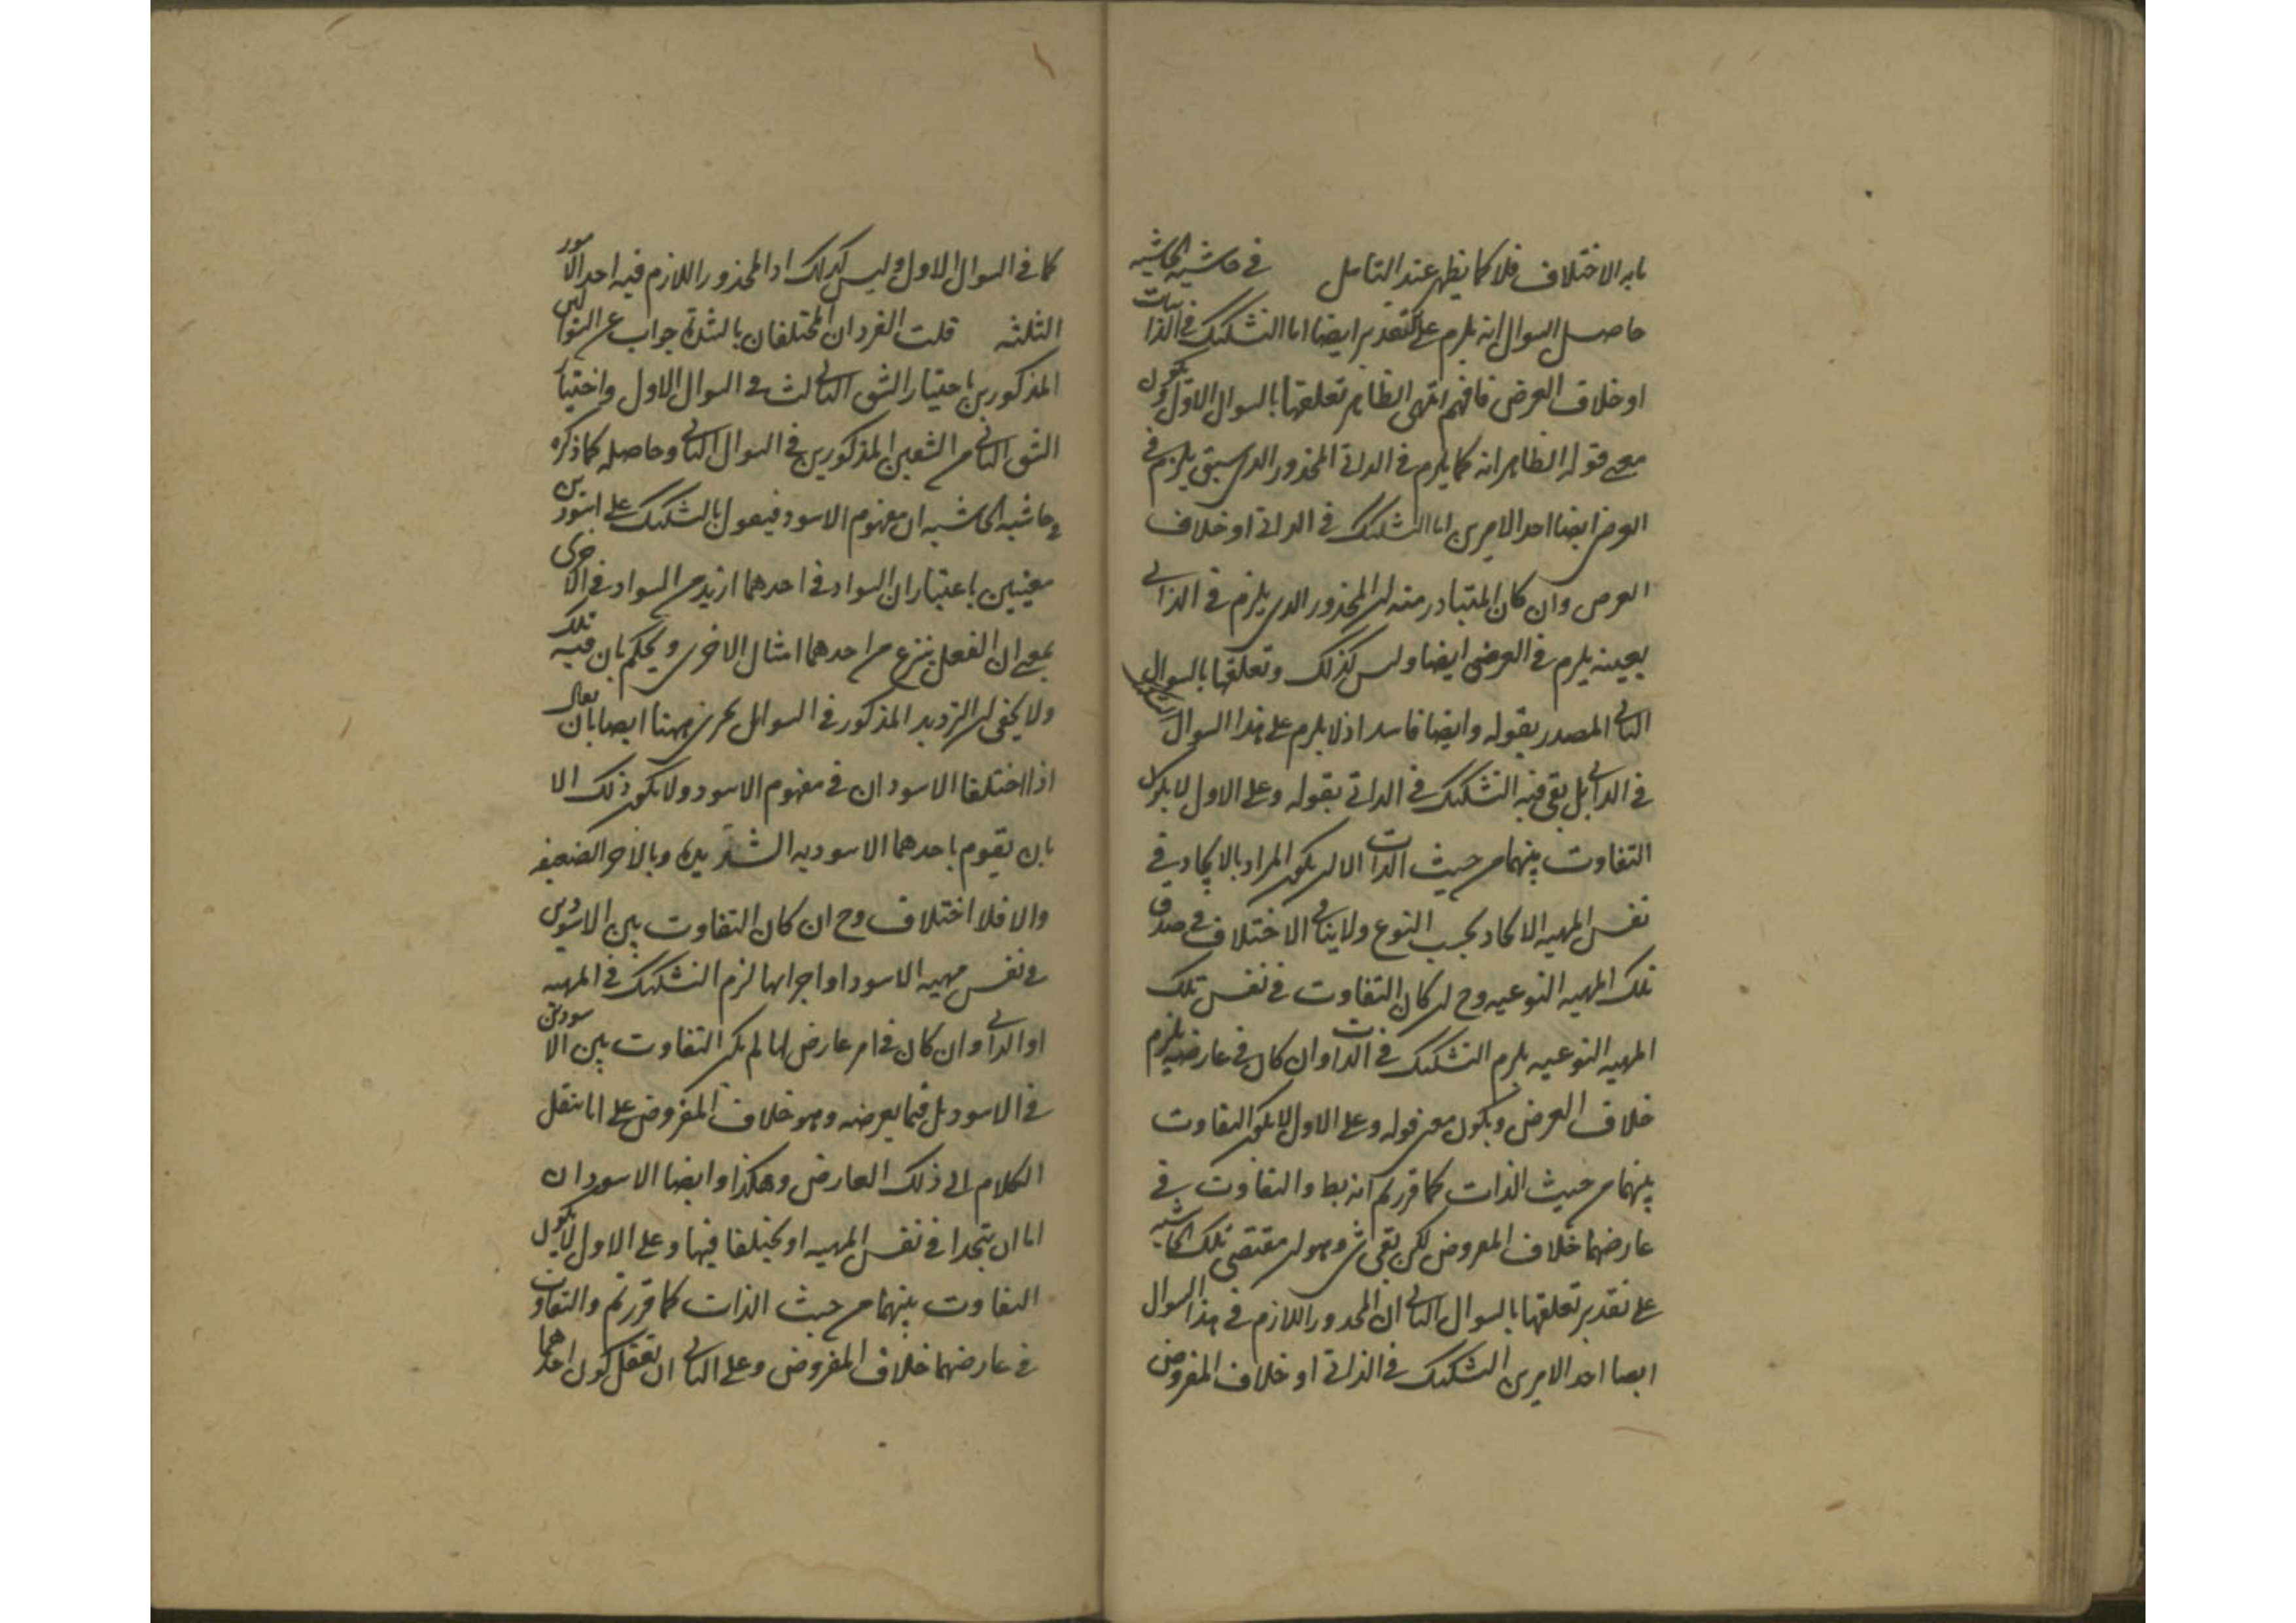 ما به الاختلاف فلا كما يظهر عند التامل في حاشية الحاشيه
حاصل السوال انه يلزم على التقدير ايضا اما التشكيك في الذاتيات
او خلاف الفرض فافهم انتهى الظاهر تعلقها بالسوال الاول ويكون
معنى قوله الظاهر انه كما يلزم في الذاتي المحذور الذي سبق يلزم في
العرض ايضا احد الامرين اما التشكيك في الذاتي او خلاف
الفرض وان كان المتبادر منه ان المحذور الذي يلزم في الذاتي
بعينه يلزم في العرضي ايضا وليس كذلك وتعلقها بالسوال
الثاني المصدر بقوله وايضا فاسد اذ لا يلزم على هذا السوال
في الذاتي بل بقي فيه التشكيك في الذاتي بقوله وعلى الاول لا يكون
التفاوت بينهما من حيث الذات الا ان يكون المراد بالاتحاد في
نفس المهيه الاتحاد بحسب النوع ولا ينافي الاختلاف في صدق
تلك المهيه النوعيه وح ان كان التفاوت في نفس تلك
المهيه النوعيه يلزم التشكيك في الذات وان كان في عارضيه يلزم
خلاف الفرض ويكون معنى قوله وعلى الاول لا يكون التفاوت
بينهما من حيث الذات كما قررتم انه بط والتفاوت في
عارضهما خلاف المفروض لكن بقي شي وهو ان مقتضى تلك الحاشيه
على تقدير تعلقها بالسوال الثاني ان المحذور اللازم في هذا السوال
ايضا احد الامرين التشكيك في الذاتي او خلاف المفروض
كما في السوال الاول وليس كذلك اذ المحذور اللازم فيه احد الامور
الثلثه قلت الفردان المختلفان بالشدة جواب عن السوالين
المذكورين باختيار الشق الثالث في السوال الاول واختيار
الشق الثاني من الشقين المذكورين في السوال الثاني وحاصله كما ذكره
في حاشيه الحاشيه ان مفهوم الاسود فيقول بالتشكيك على اسودين
معينين باعتبار ان السواد في احدهما ازيد من السواد في الاخرى
بمعنى ان الفعل ينزع من احدهما امثال الاخرى ويحكم بان فيه تلك
ولا يخفى ان الترديد المذكور في السوال يجري ههنا ايضا بان يقال
اذا اختلفا الاسودان في مفهوم الاسود ولا يكون ذلك الا
بان يقوم باحدهما الاسوديه الشديدة وبالاخر الضعيفه
والا فلا اختلاف وح ان كان التفاوت بين الاسودين
في نفس مهيه الاسود او اجزائها لزم التشكيك في المهيه
او الذاتي وان كان في امر عارض لها لم يكن التفاوت بين الاسودين
في الاسود بل فيما يعرضه وهو خلاف المفروض على انا ننقل
الكلام الى ذلك العارض وهكذا وايضا الاسودان
اما ان يتحدا في نفس المهيه او يختلفا فيها وعلى الاول لا يكون
التفاوت بينهما من حيث الذات كما قررتم والتفاوت
في عارضهما خلاف المفروض وعلى الثاني ان تعقل كون احدهما